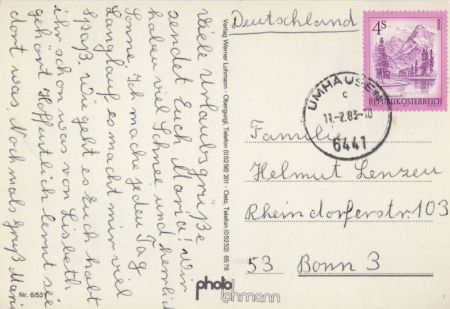 viele Urlaubsgrüße
sendet Euch Maria! Wir
haben viel Schnee und herrlich
Sonne. Ich mache jeden Tag
Langlauf, es macht mir viel
Spaß, wie geht es Euch habt
ihr schon was von Lisbeth
gehört Hoffentlich lernt sie
dort was. Nochmals Gruß Maria
Nr. 6/53
Verlag Werner Lohmann - Obergurgl, Telefon (05256) 301 - Oetz, Telefon (05252) 65 78
photo
lohmann
Deutschland
4S
REPUBLIK ÖSTERREICH
UMHAUSEN
c
11.-2.83-10
6441
Familie
Helmut Lenzen
Rheindorferstr 103
53 Bonn 3